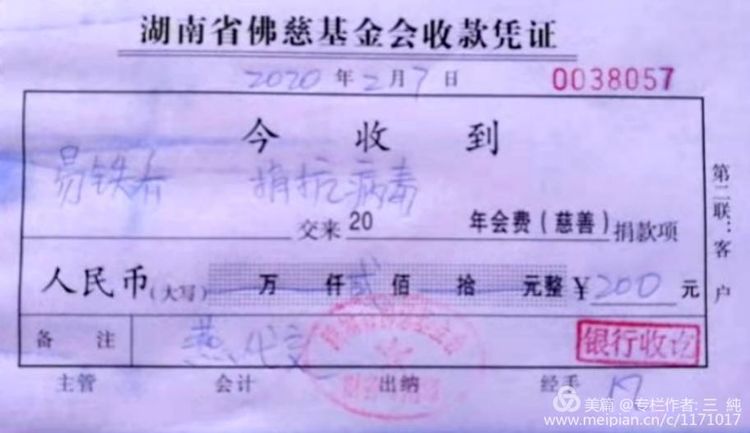 湖南省佛慈基金会收款凭证
2020年2月7日 0038057
今收到
易铁 捐抗病毒
交来20 年会费(慈善)捐款项
人民币(大写) 万 仟 贰佰 拾 元整 ¥200元
备注 燕代交 银行收讫
主管 会计 出纳 经手
第二联:客户
美篇 @专栏作者: 三 純
www.meipian.cn/c/1171017